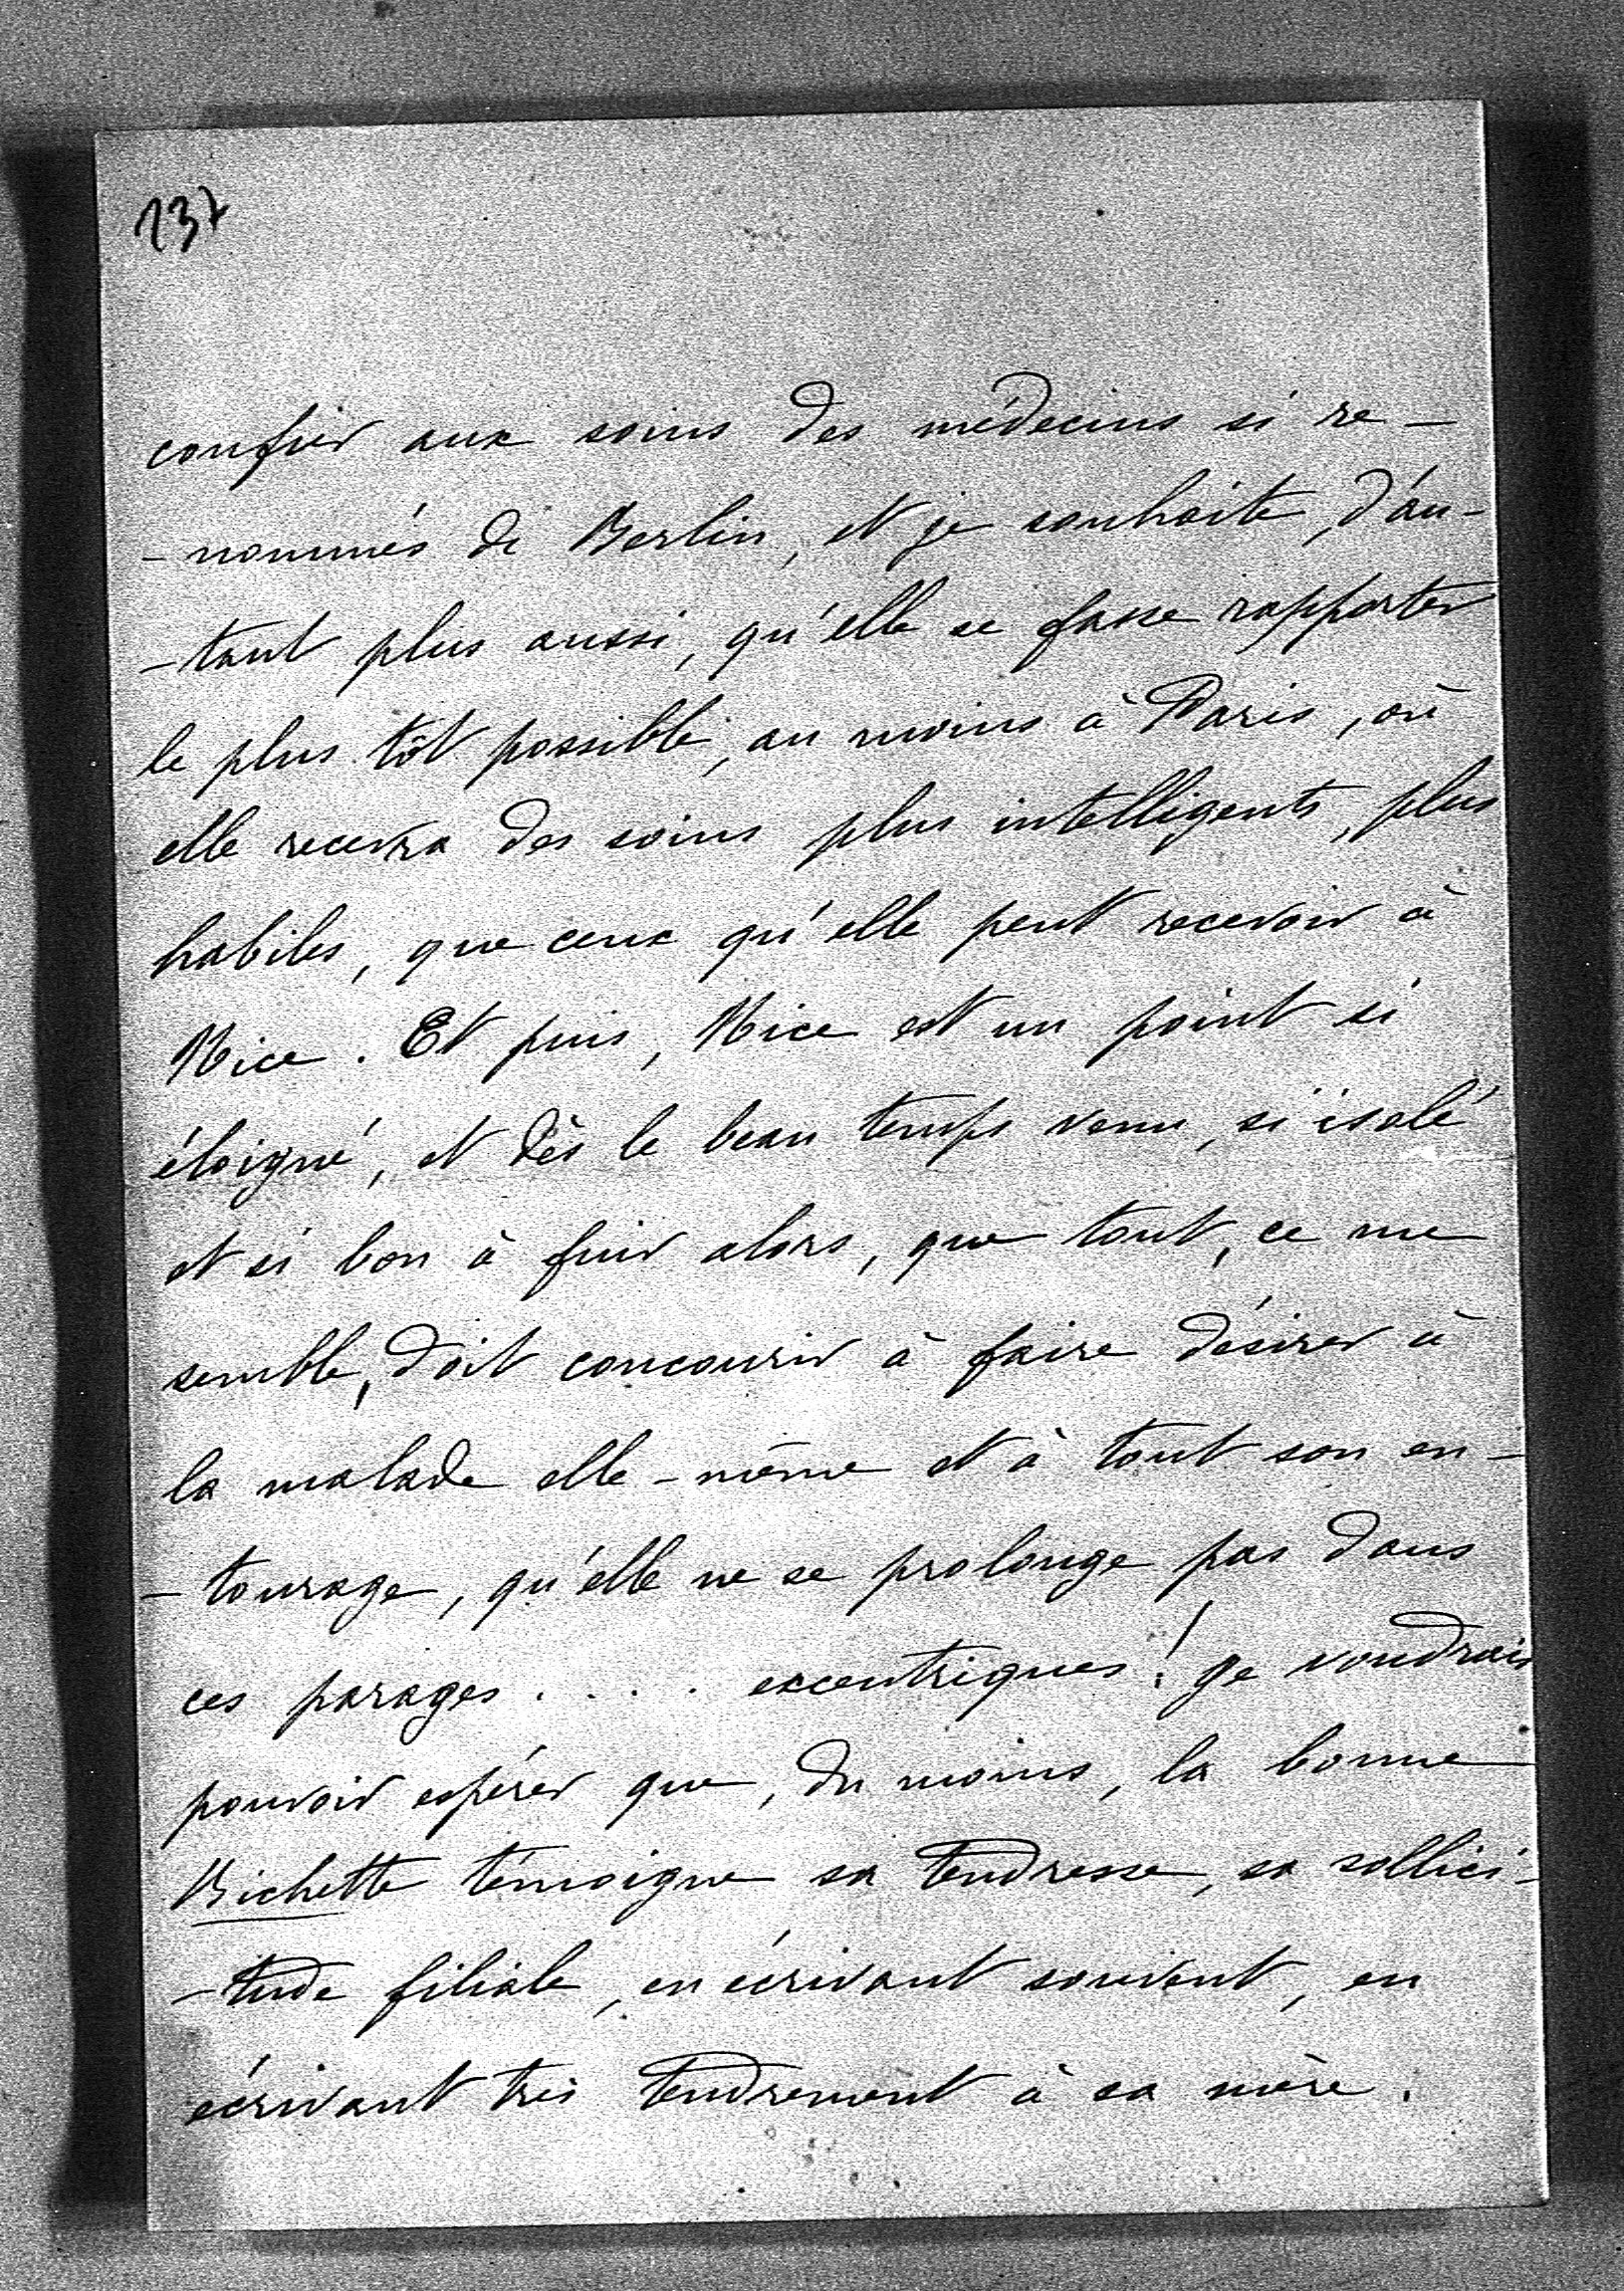 137
confier aux soins des médecins si re-
-nommés de Berlin, et je souhaite, d'au-
-tant plus aussi, qu'elle se fasse rapporter
le plus tôt possible, au moins à Paris, où
elle recevra des soins plus intelligents, plus
habiles, que ceux qu'elle peut recevoir à
Nice. Et puis, Nice est un point si
éloigné, et dès le beau temps venu, si isolé
et si bon à fuir alors, que tout, ce me
semble, doit concourir à faire désirer à
la malade elle-même et à tout son en-
-tourage, qu'elle ne se prolonge pas dans
ces parages.... excentriques! Je voudrais
pouvoir espérer que, du moins, la bonne
Bichette témoigne sa tendresse, sa sollici-
-tude filiale, en écrivant souvent, en
écrivant très tendrement à sa mère.